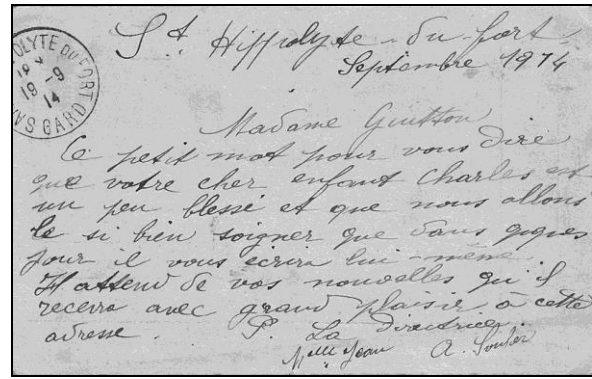 St Hippolyte-du-fort
Septembre 1914
OLYTE DU FORT
19-9
14
GARD
Madame Guitton
Ce petit mot pour vous dire
que votre cher enfant Charles est
un peu blessé et que nous allons
le si bien soigner que dans qques
jour il vous ecrira lui-même
Il attend de vos nouvelles qu'il
recevra avec grand plaisir à cette
adresse. P. La directrice
Melle Jean A. Soulier